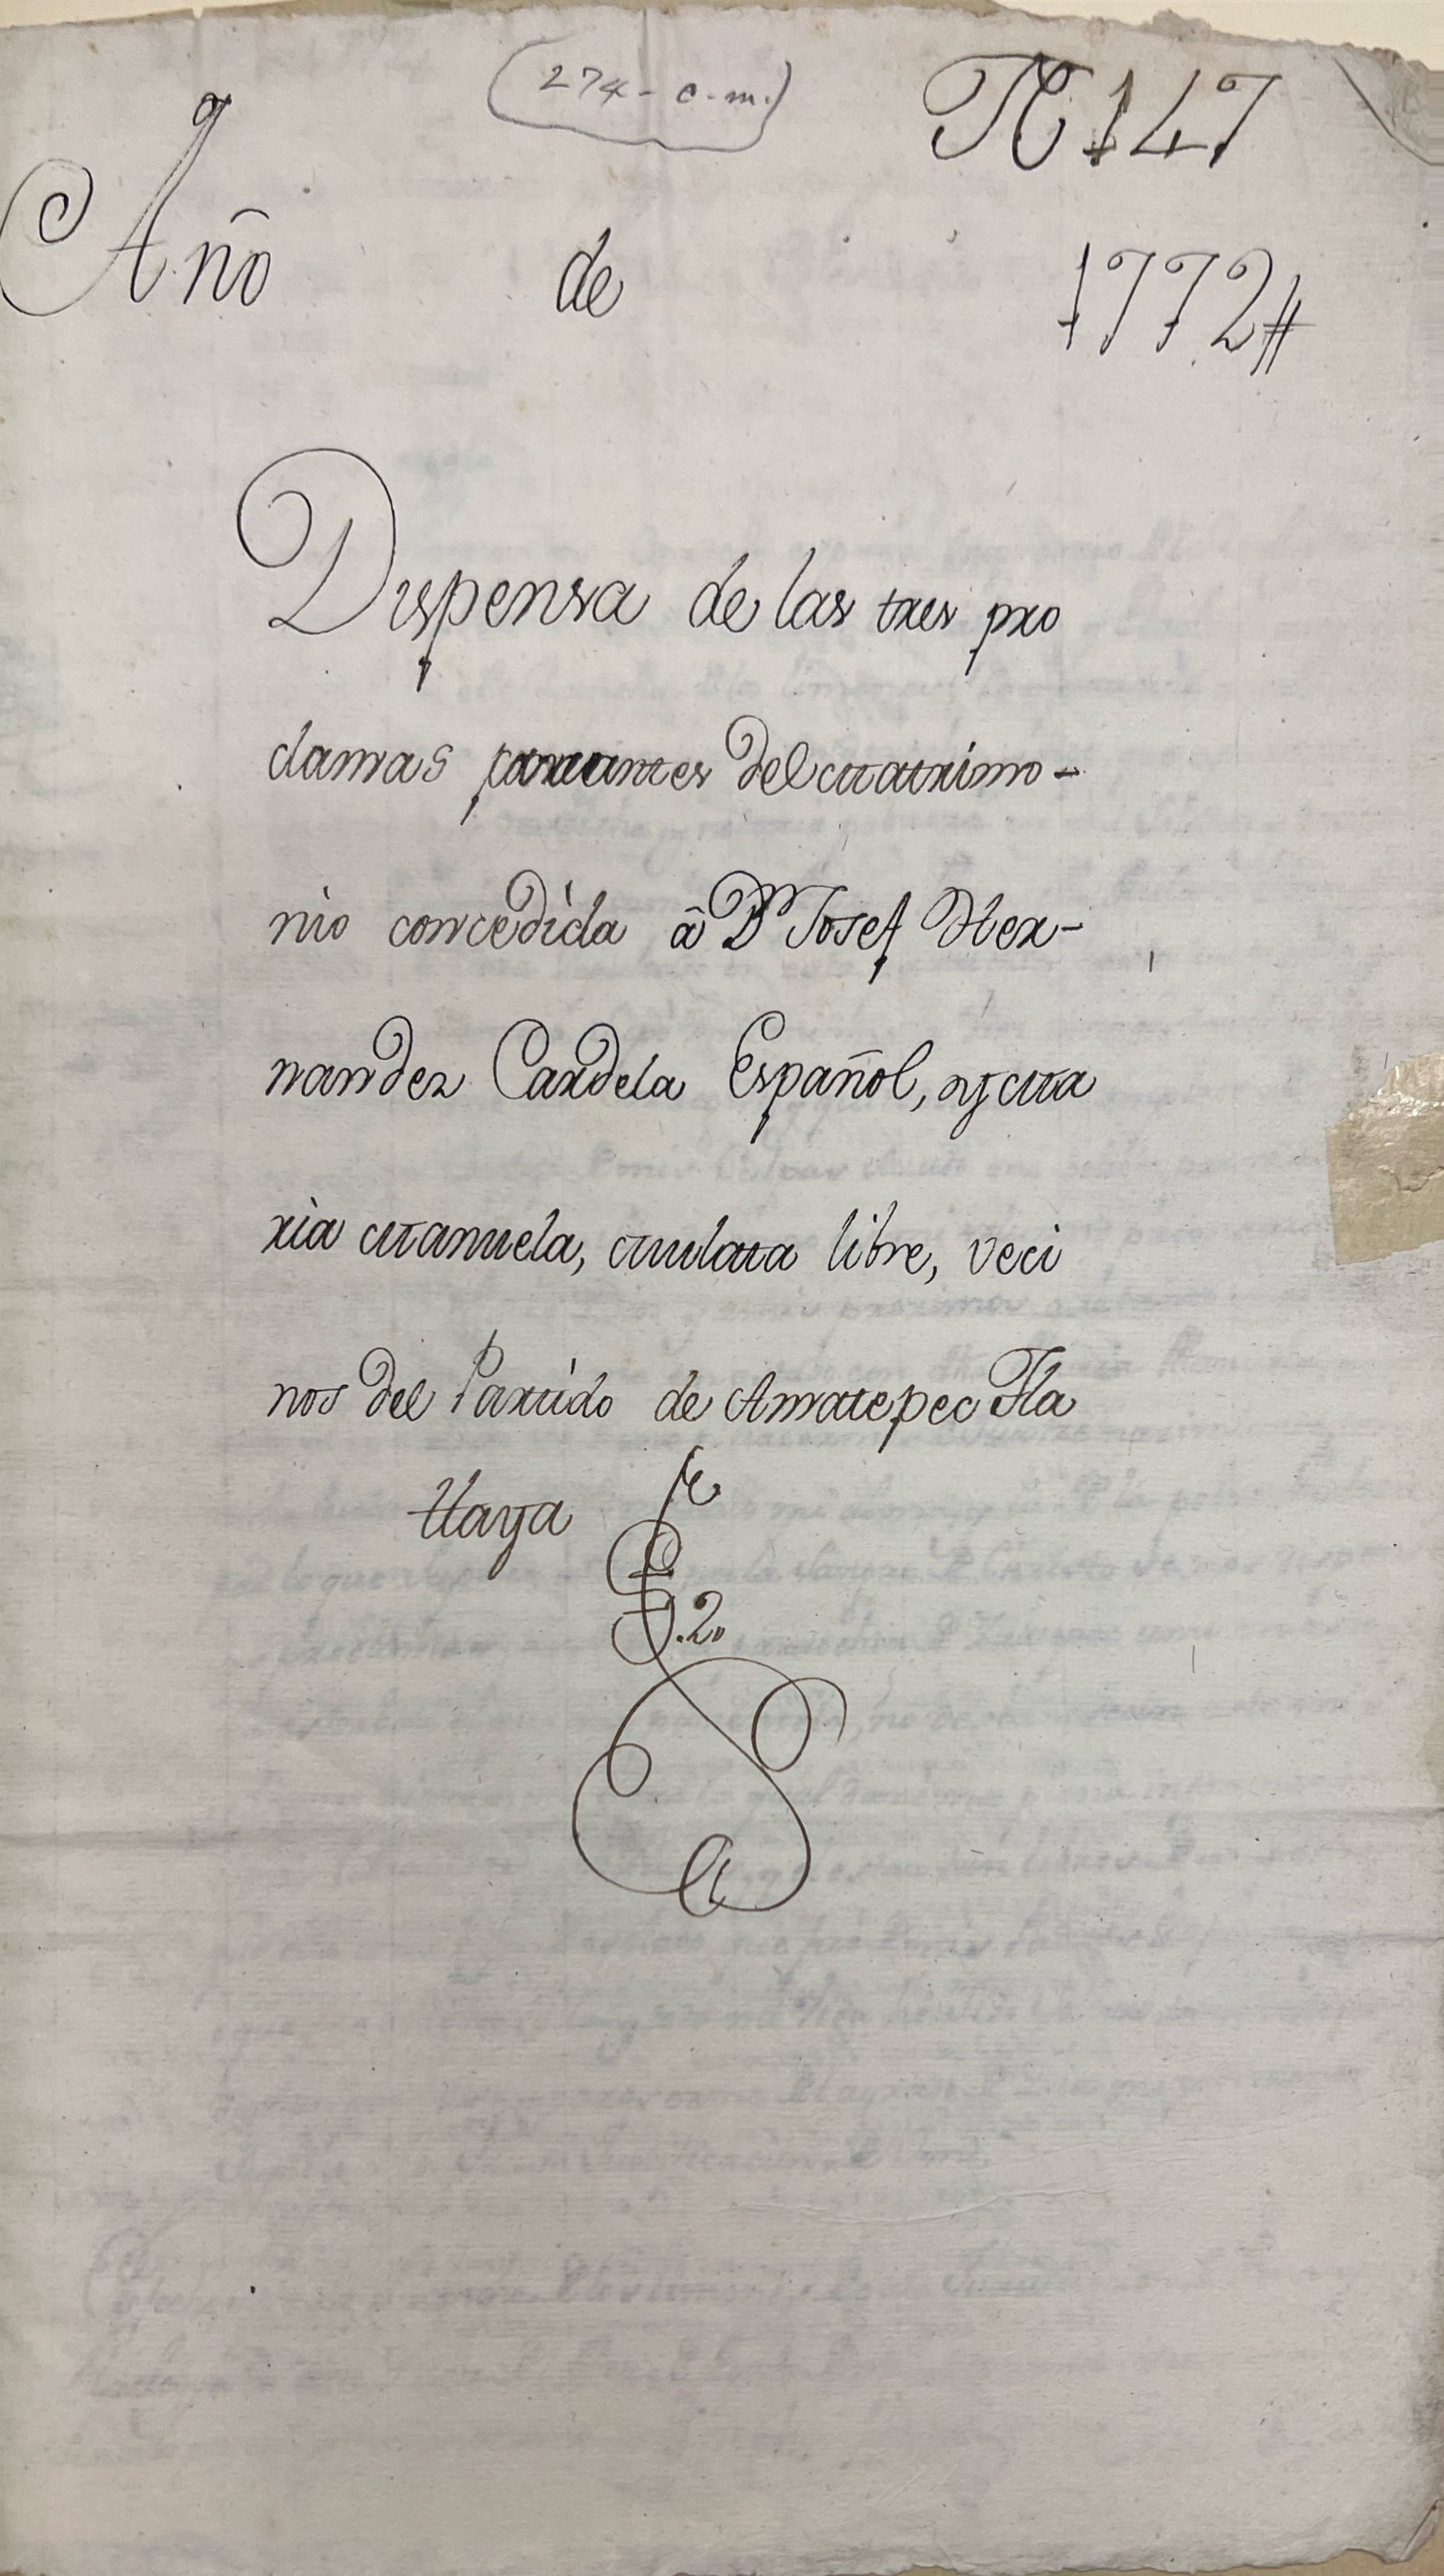 (274- c.m.)
N 147
Año de 1772#
Dispensa de las tres pro
clamas para antes del Matrimo-
nio concedida â Dn Josef Her-
nandez Cardela Español, y Ma
ria Manuela, Mulata libre, veci
nos del Partido de Amatepec Tla
tlaya
S.2.